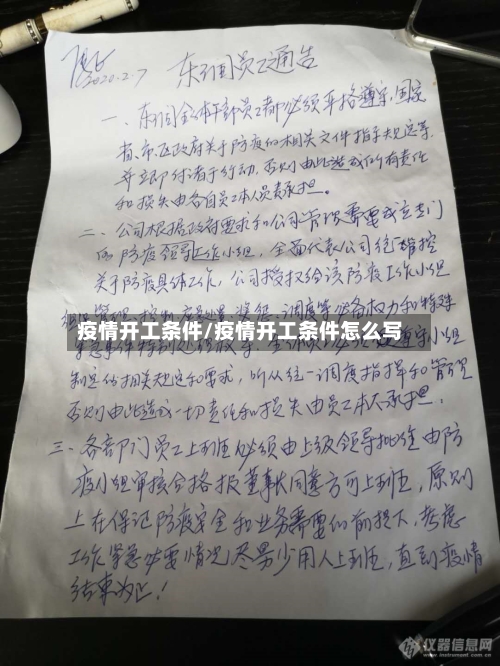 2020.2.7
东润员工通告
一、东润全体干部员工都必须严格遵守国家
省、市、区政府关于防疫的相关文件指示规定等
并立即付诸于行动，否则由此造成的所有责任
和损失由各自员工本人员责承担。
二、公司根据政府要求和公司管理需要成立专门
的防疫领导工作小组，全面代表公司统一指挥
关于防疫具体工作，公司授权给该防疫工作小组
疫情开工条件/疫情开工条件怎么写
制定的相关规定和要求，听从统一调度指挥和管理
否则由此造成一切责任和损失由员工本人承担。
三、各部门员工上班必须由上级领导批准由防
疫小组审核合格报董事长同意方可上班，原则
上在保证防疫安全和业务需要的前提下，考虑
工作紧急必要情况尽量少用人上班，直到疫情
结束为止！
仪器信息网
www.instrument.com.cn